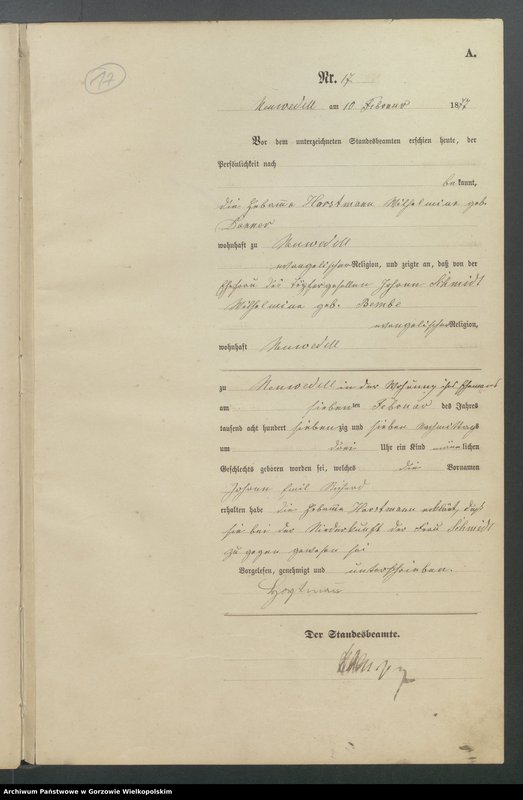 17
A.
Nr. 17
Neuwedell am 10 Februar 1877
Vor dem unterzeichneten Standesbeamten erschien heute, der
Persönlichkeit nach
bekannt,
die Hebamme Horstmann Wilhelmine geb.
wohnhaft zu Neuwedell
evangelischer Religion, und zeigte an, daß von der
Ehefrau des Töpfergesellen Johann Schmidt
Wilhelmine geb. Bembe
evangelischer Religion,
wohnhaft Neuwedell
zu Neuwedell in der Wohnung ihres Ehemanns
am siebenten Februar des Jahres
tausend acht hundert siebenzig und sieben Nachmittags
um drei Uhr ein Kind männlichen
Geschlechts geboren worden sei, welches die Vornamen
Johann Emil Richard
erhalten habe die Hebamme Horstmann erklärt, daß
sie bei der Niederkunft der Frau Schmidt
zu gegen gewesen sei
Vorgelesen, genehmigt und unterschrieben.
Der Standesbeamte.
Archiwum Państwowe w Gorzowie Wielkopolskim